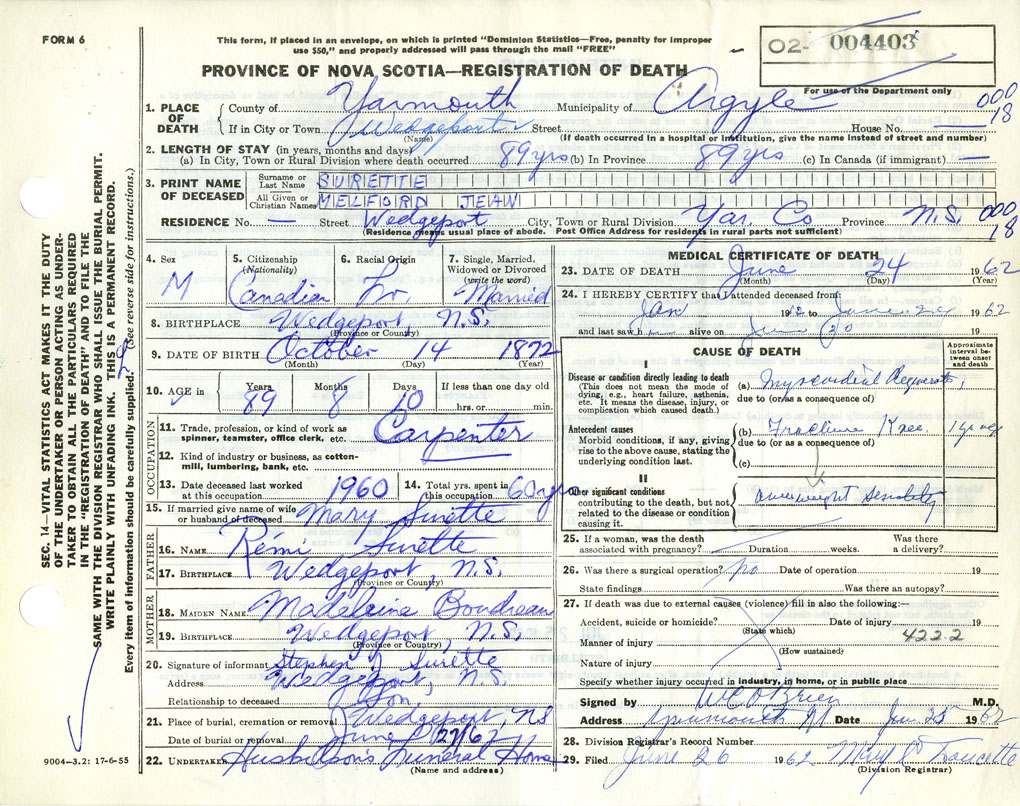 FORM 6
This form, if placed in an envelope, on which is printed "Dominion Statistics—Free, penalty for improper
use $50," and properly addressed will pass through the mail "FREE"
02- 004403
PROVINCE OF NOVA SCOTIA—REGISTRATION OF DEATH
For use of the Department only
1. PLACE OF DEATH
County of Yarmouth Municipality of Argyle 000
18
If in City or Town Wedgeport Street — House No. —
(Name) (If death occurred in a hospital or institution, give the name instead of street and number)
2. LENGTH OF STAY (in years, months and days)
(a) In City, Town or Rural Division where death occurred 89 yrs (b) In Province 89 yrs (c) In Canada (if immigrant) —
3. PRINT NAME OF DECEASED
Surname or Last Name SURETTE
All Given or Christian Names MELFORD JEAN
RESIDENCE No. — Street Wedgeport City, Town or Rural Division Yar. Co Province N.S. 000
18
(Residence means usual place of abode. Post Office Address for residents in rural parts not sufficient)
4. Sex M
5. Citizenship (Nationality) Canadian
6. Racial Origin Fr.
7. Single, Married, Widowed or Divorced (write the word) Married
8. BIRTHPLACE Wedgeport N.S.
(Province or Country)
9. DATE OF BIRTH October 14 1872
(Month) (Day) (Year)
10. AGE in Years 89 Months 8 Days 10 If less than one day old
hrs. or min.
OCCUPATION
11. Trade, profession, or kind of work as
spinner, teamster, office clerk, etc. Carpenter
12. Kind of industry or business, as cotton-
mill, lumbering, bank, etc.
13. Date deceased last worked
at this occupation 1960
14. Total yrs. spent in
this occupation 60 yrs
15. If married give name of wife
or husband of deceased Mary Surette
FATHER
16. NAME Rémi Surette
17. BIRTHPLACE Wedgeport, N.S.
(Province or Country)
MOTHER
18. MAIDEN NAME Madeleine Boudreau
19. BIRTHPLACE Wedgeport, N.S.
(Province or Country)
20. Signature of informant Stephen J Surette
Address Wedgeport, N.S.
Relationship to deceased Son,
21. Place of burial, cremation or removal Wedgeport, NS
Date of burial or removal June 27/62
22. UNDERTAKER Huskilson's Funeral Home
(Name and address)
MEDICAL CERTIFICATE OF DEATH
23. DATE OF DEATH June 24 1962
(Month) (Day) (Year)
24. I HEREBY CERTIFY that I attended deceased from
Jan 19 to June 1962
and last saw h alive on June 20 19
CAUSE OF DEATH
Approximate interval between onset and death
I
Disease or condition directly leading to death
(This does not mean the mode of
dying, e.g., heart failure, asthenia,
etc. It means the disease, injury, or
complication which caused death.)
(a) Myocardial Degenerat,
due to (or as a consequence of)
Antecedent causes
Morbid conditions, if any, giving
rise to the above cause, stating the
underlying condition last.
(b) Fracture Knee. 1 yr ago
due to (or as a consequence of)
(c)
II
Other significant conditions
contributing to the death, but not
related to the disease or condition
causing it.
overweight Senility
25. If a woman, was the death
associated with pregnancy? Duration weeks. Was there
a delivery?
26. Was there a surgical operation? no Date of operation 19
State findings Was there an autopsy?
27. If death was due to external causes (violence) fill in also the following:—
Accident, suicide or homicide? Date of injury 19
(State which)
422.2
Manner of injury
(How sustained)
Nature of injury
Specify whether injury occurred in industry, in home, or in public place
Signed by W C O'Brien M.D.
Address Yarmouth NS Date Jun 25 1962
28. Division Registrar's Record Number
29. Filed June 26 1962
(Division Registrar)
SEC. 14—VITAL STATISTICS ACT MAKES IT THE DUTY
OF THE UNDERTAKER OR PERSON ACTING AS UNDER-
TAKER TO OBTAIN ALL THE PARTICULARS REQUIRED
IN THE "REGISTRATION OF DEATH" AND FILE THE
SAME WITH THE DIVISION REGISTRAR WHO SHALL ISSUE THE BURIAL PERMIT.
WRITE PLAINLY WITH UNFADING INK. THIS IS A PERMANENT RECORD.
Every item of information should be carefully supplied. (See reverse side for instructions.)
9004—3.2: 17-6-55